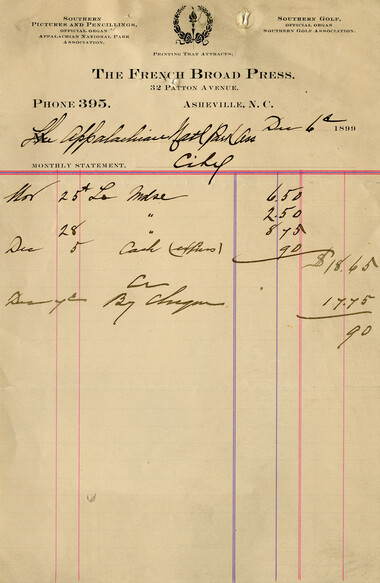 Southern Pictures and Pencillings,
Official Organ
Appalachian National Park
Association.
Southern Golf,
Official Organ
Southern Golf Association.
Printing That Attracts;
The French Broad Press,
32 Patton Avenue,
Phone 395. Asheville, N. C.
The Appalachian Natl Park Assn Dec 6th 1899
City
Monthly Statement,
Nov 25th To Mdse 6.50
" 2.50
28 " 8.75
Dec 5 Cash 90
$18.65
Cr
Dec 7th By Cheque 17.75
90